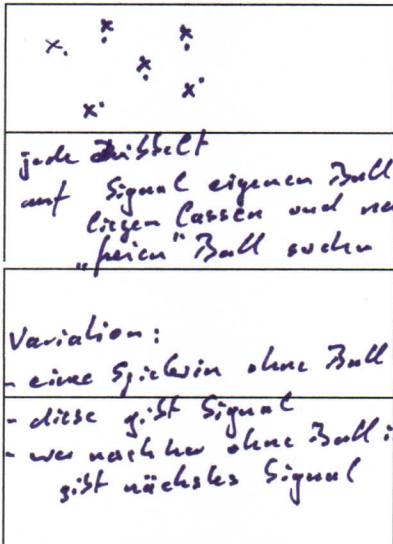 jede dribbelt
auf Signal eigenen Ball
liegen lassen und
"freien" Ball suchen
Variation:
- eine Spielerin ohne Ball
- diese gibt Signal
- wer nachher ohne Ball
gibt nächstes Signal